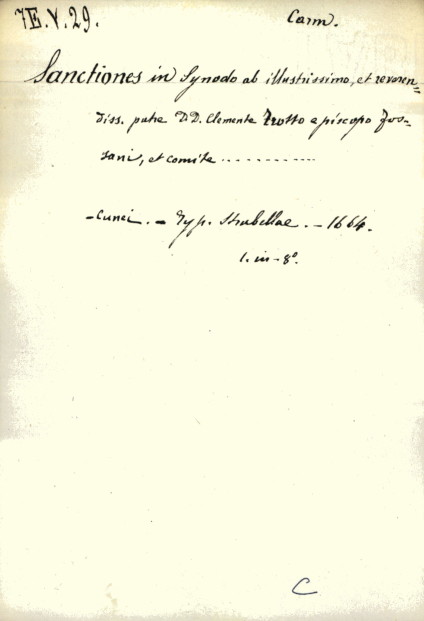 7E.V.29.
Carm.
Sanctiones in Synodo ab illustrissimo, et reveren=
diss. patre D D. Clemente Trotto episcopo Fos=
sani, et comite ............
- Cunei. - Typ. Strabellae. - 1664.
1. in - 8º.
C